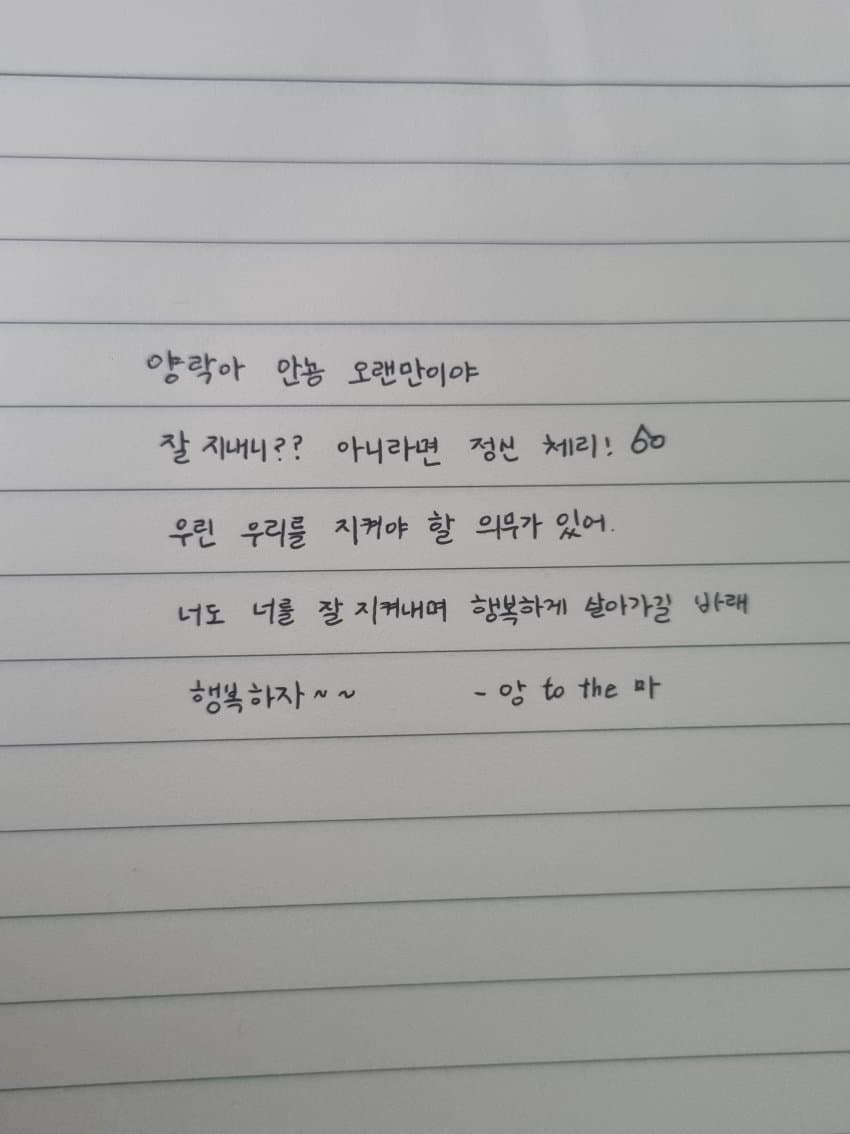 양락아 안뇽 오랜만이야
잘 지내니?? 아니라면 정신 체리!
우린 우리를 지켜야 할 의무가 있어.
너도 너를 잘 지켜내며 행복하게 살아가길 바래
행복하자~~ - 앙 to the 마